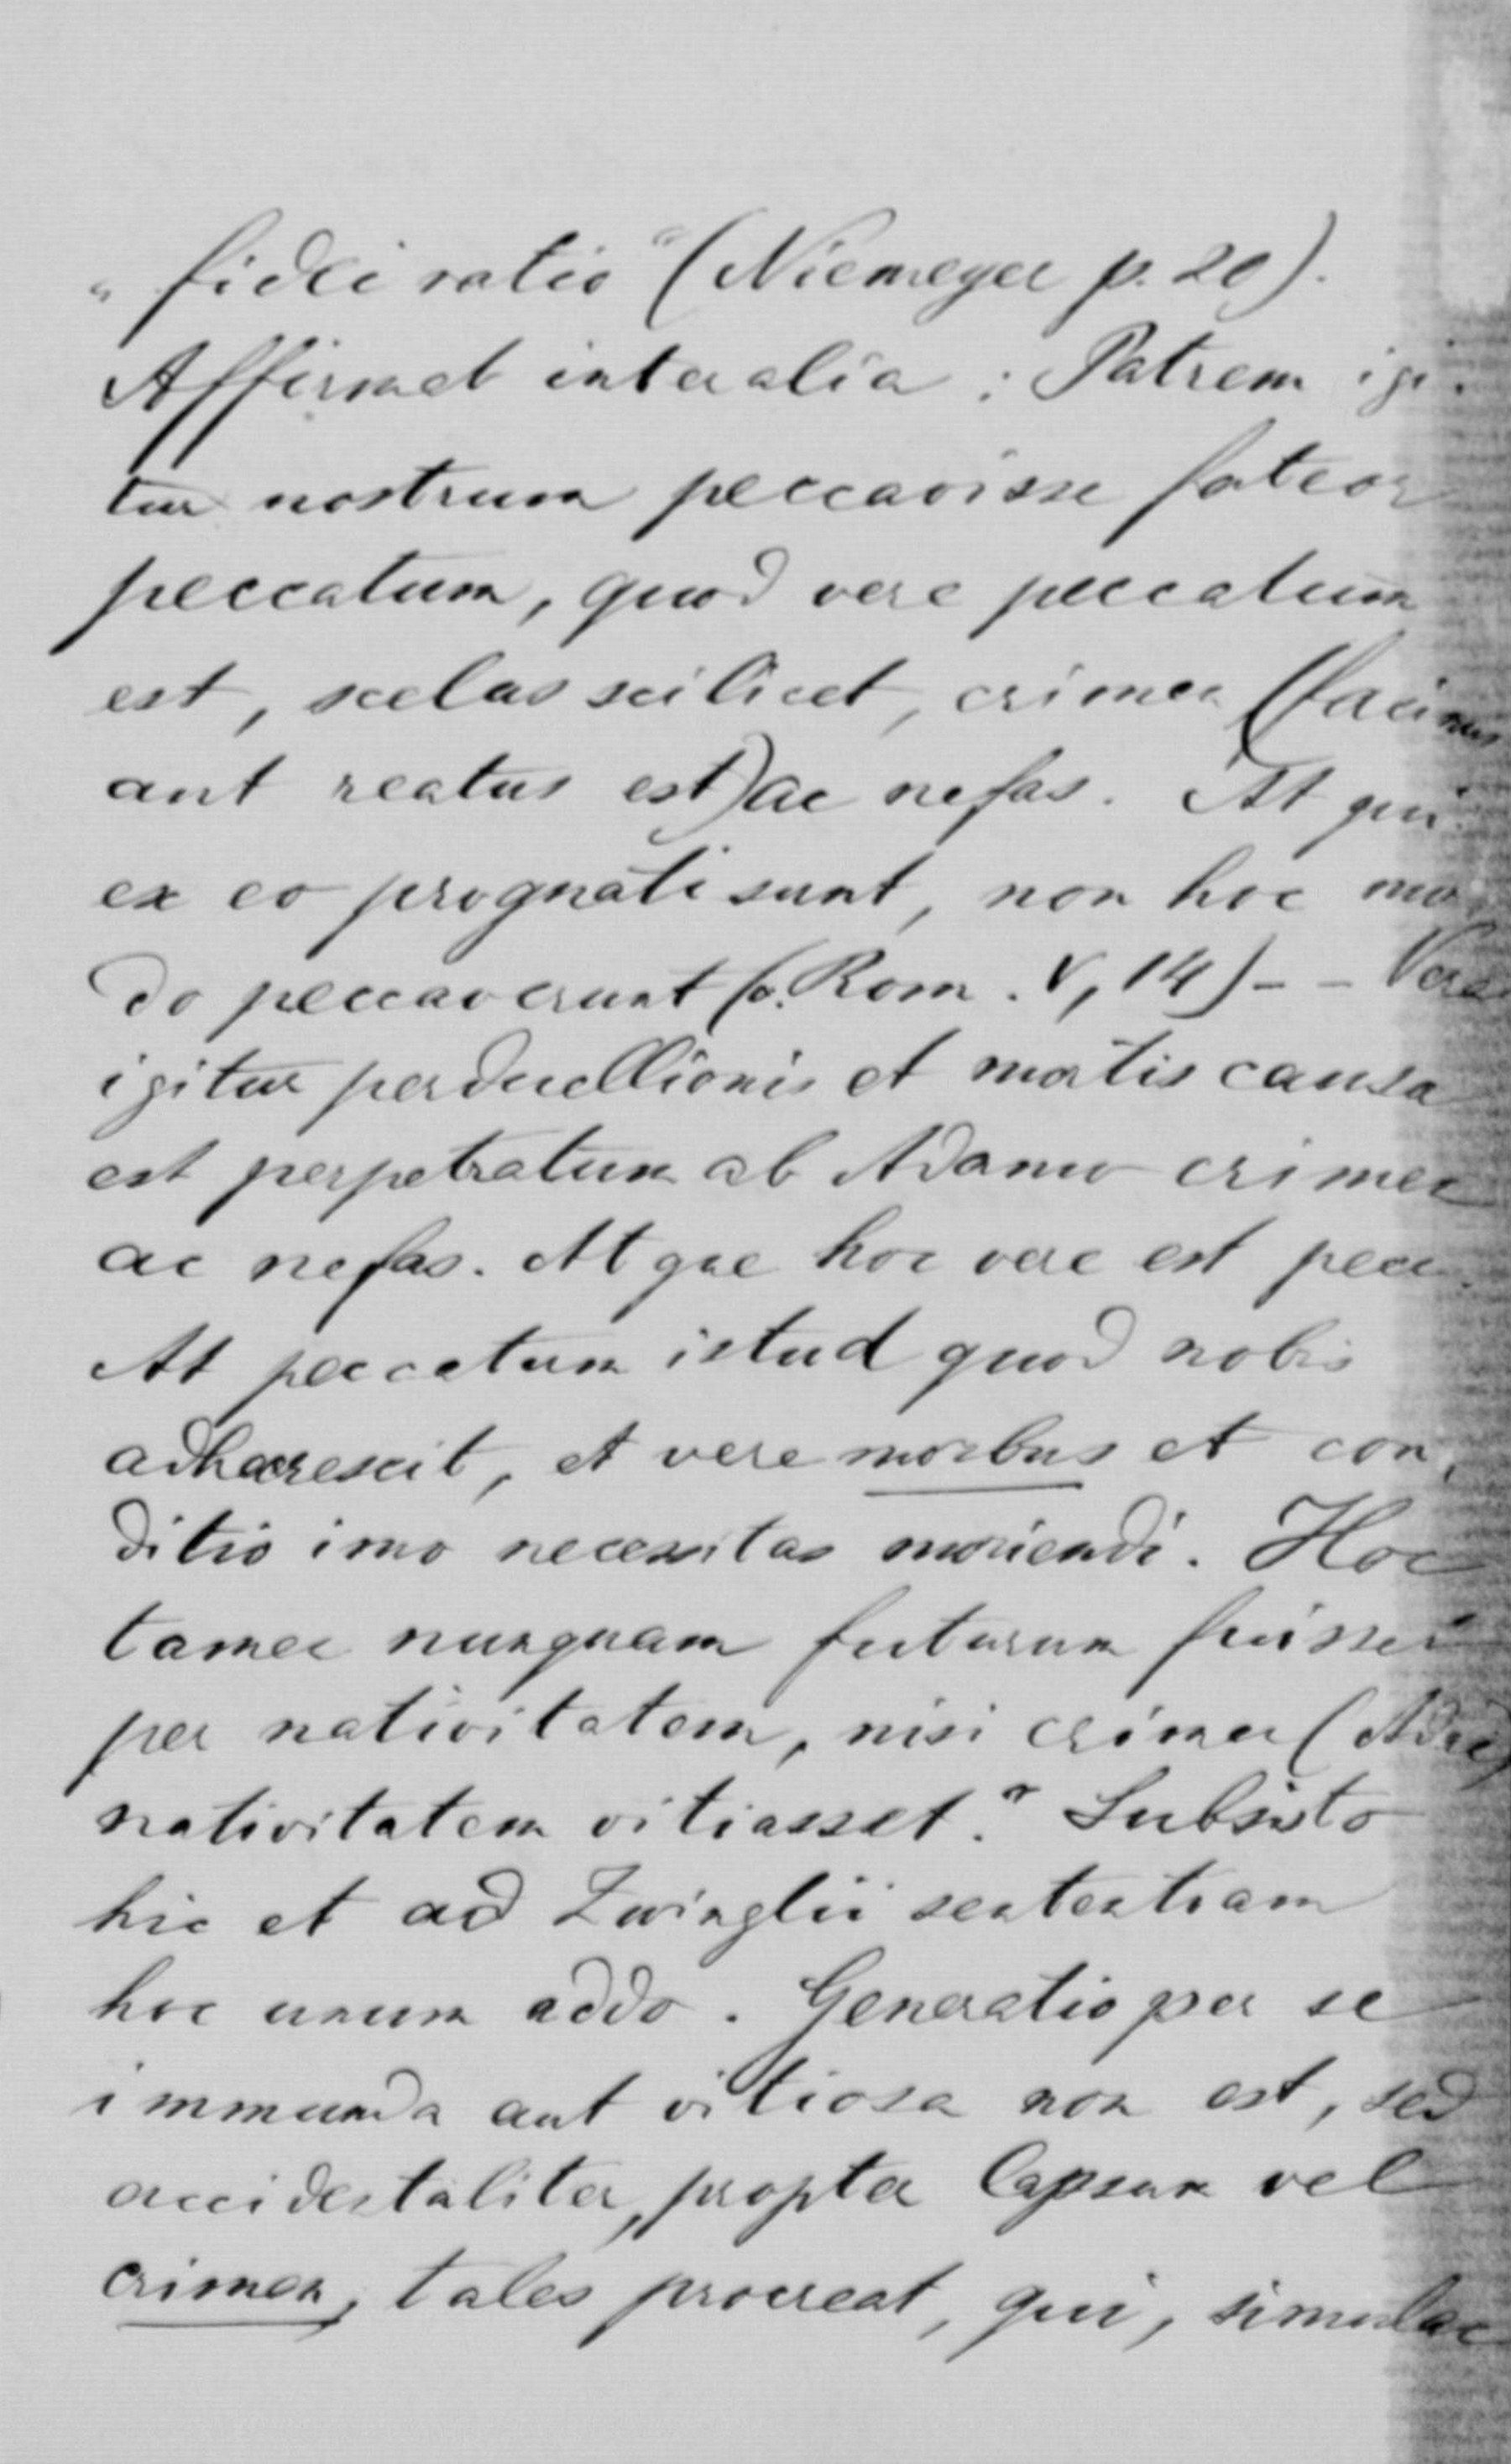 „fidei ratio“ (Niemeyer p. 20).
Affirmat inter alia: Patrem igi-
tur nostrum peccavisse fateor
peccatum, quod vere peccatum
est, scelus scilicet, crimen (facinus
aut reatus est) ac nefas. At qui
ex eo prognati sunt, non hoc mo-
do peccaverunt (c. Rom. V, 14) - - Vera
igitur perduellionis et mortis causa
est perpetratum ab Adamo crimen
ac nefas. Atque hoc vere est pecc.
At peccatum istud quod nobis
adhaerescit, et vere morbus et con-
ditio imo necessitas moriendi. Hoc
tamen nunquam futurum fuisset
per nativitatem, nisi crimen (Adae)
nativitatem vitiasset." Subsisto
hic et ad Zwinglii sententiam
hoc unum addo. Generatio per se
immunda aut vitiosa non est, sed
accidentaliter, propter lapsum vel
crimen, tales procreat, qui, simulac